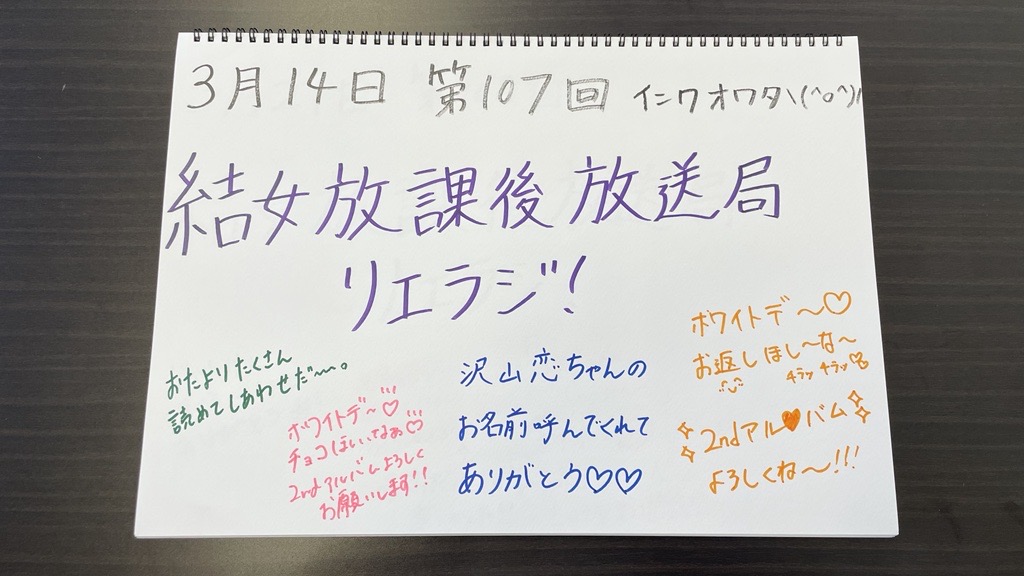 3月14日 第107回 イニワオワタ\(^o^)/
結女放課後放送局
リエラジ!
おたよりたくさん
読めてしあわせだ〜。
ホワイトデ〜♡
チョコほしいなぁ♡
2ndアルバムよろしく
お願いします!!
沢山恋ちゃんの
お名前呼んでくれて
ありがとう♡♡
ホワイトデ〜♡
お返しほし〜な〜
チラッ チラッ
2ndアル🧡バム
よろしくね〜!!!